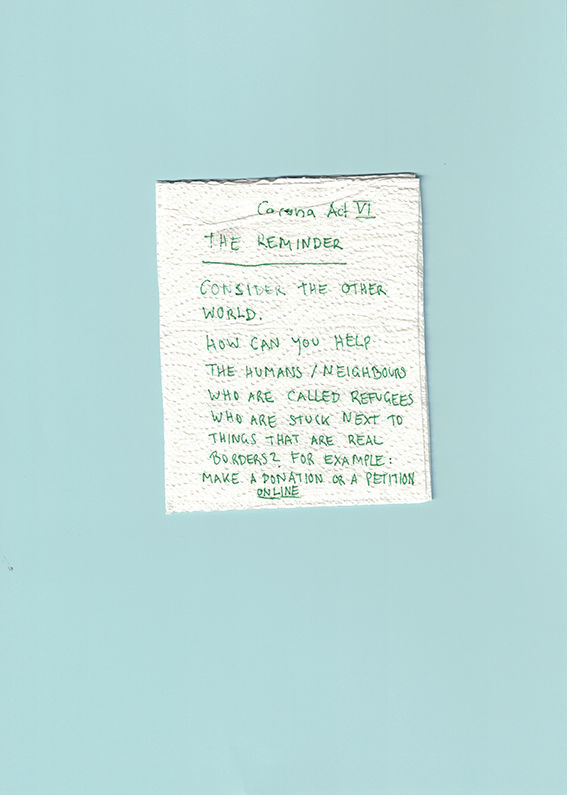 Corona Act VI
THE REMINDER
CONSIDER THE OTHER
WORLD.
HOW CAN YOU HELP
THE HUMANS / NEIGHBOURS
WHO ARE CALLED REFUGEES
WHO ARE STUCK NEXT TO
THINGS THAT ARE REAL
BORDERS? FOR EXAMPLE:
MAKE A DONATION OR A PETITION
ONLINE